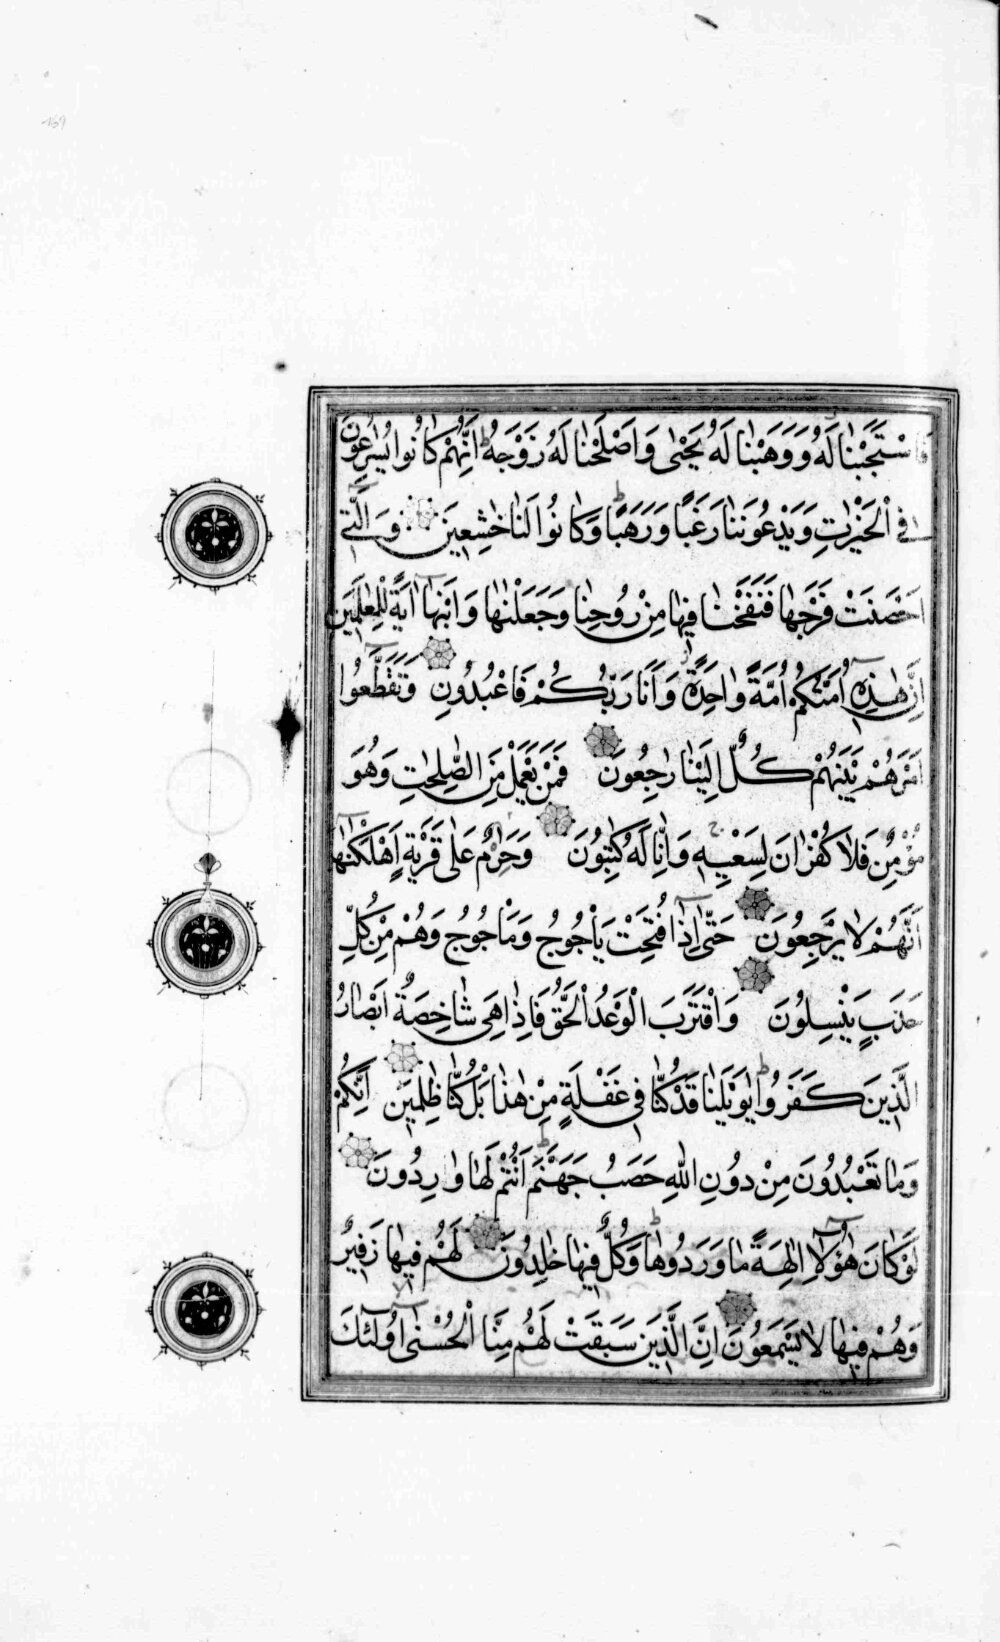 فَاسْتَجَبْنَا لَهُ وَوَهَبْنَا لَهُ يَحْيٰى وَاَصْلَحْنَا لَهُ زَوْجَهُ اِنَّهُمْ كَانُوا يُسَارِعُونَ
فِى الْخَيْرَاتِ وَيَدْعُونَنَا رَغَبًا وَرَهَبًا وَكَانُوا لَنَا خَاشِعِينَ وَالَّتِى
اَحْصَنَتْ فَرْجَهَا فَنَفَخْنَا فِيهَا مِنْ رُوحِنَا وَجَعَلْنَاهَا وَابْنَهَا اٰيَةً لِلْعَالَمِينَ
اِنَّ هٰذِهِ اُمَّتُكُمْ اُمَّةً وَاحِدَةً وَاَنَا رَبُّكُمْ فَاعْبُدُونِ وَتَقَطَّعُوا
اَمْرَهُمْ بَيْنَهُمْ كُلٌّ اِلَيْنَا رَاجِعُونَ فَمَنْ يَعْمَلْ مِنَ الصَّالِحَاتِ وَهُوَ
مُؤْمِنٌ فَلَا كُفْرَانَ لِسَعْيِهِ وَاِنَّا لَهُ كَاتِبُونَ وَحَرَامٌ عَلٰى قَرْيَةٍ اَهْلَكْنَاهَا
اَنَّهُمْ لَا يَرْجِعُونَ حَتّٰى اِذَا فُتِحَتْ يَأْجُوجُ وَمَأْجُوجُ وَهُمْ مِنْ كُلِّ
حَدَبٍ يَنْسِلُونَ وَاقْتَرَبَ الْوَعْدُ الْحَقُّ فَاِذَا هِىَ شَاخِصَةٌ اَبْصَارُ
الَّذِينَ كَفَرُوا يَاوَيْلَنَا قَدْ كُنَّا فِى غَفْلَةٍ مِنْ هٰذَا بَلْ كُنَّا ظَالِمِينَ اِنَّكُمْ
وَمَا تَعْبُدُونَ مِنْ دُونِ اللّٰهِ حَصَبُ جَهَنَّمَ اَنْتُمْ لَهَا وَارِدُونَ
لَوْ كَانَ هٰؤُلَاءِ اٰلِهَةً مَا وَرَدُوهَا وَكُلٌّ فِيهَا خَالِدُونَ لَهُمْ فِيهَا زَفِيرٌ
وَهُمْ فِيهَا لَا يَسْمَعُونَ اِنَّ الَّذِينَ سَبَقَتْ لَهُمْ مِنَّا الْحُسْنٰى اُولٰئِكَ